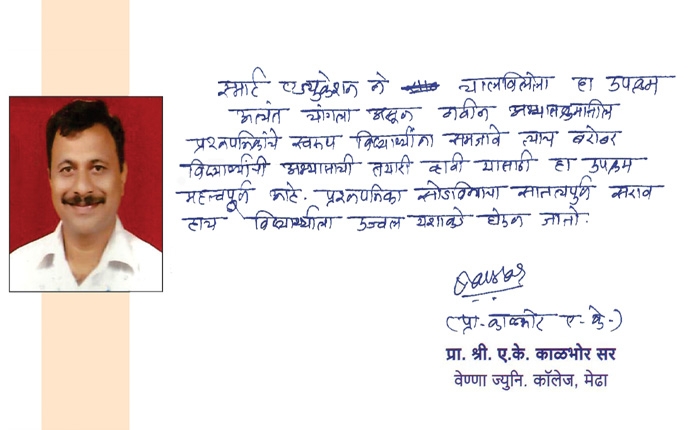 स्मार्ट एज्युकेशन ने चालविलेला हा उपक्रम
अत्यंत चांगला असून नवीन अभ्यासक्रमातील
प्रश्नपत्रिकांचे स्वरूप विद्यार्थ्यांना समजावे त्याच बरोबर
विद्यार्थ्यांची अभ्यासाची तयारी व्हावी यासाठी हा उपक्रम
महत्त्वपूर्ण आहे. प्रश्नपत्रिका सोडविण्याचा सातत्यपूर्ण सराव
हाच विद्यार्थ्याला उज्वल यशाकडे घेऊन जातो.
(प्रा. काळभोर ए. के.)
प्रा. श्री. ए.के. काळभोर सर
वेण्णा ज्युनि. कॉलेज, मेढा